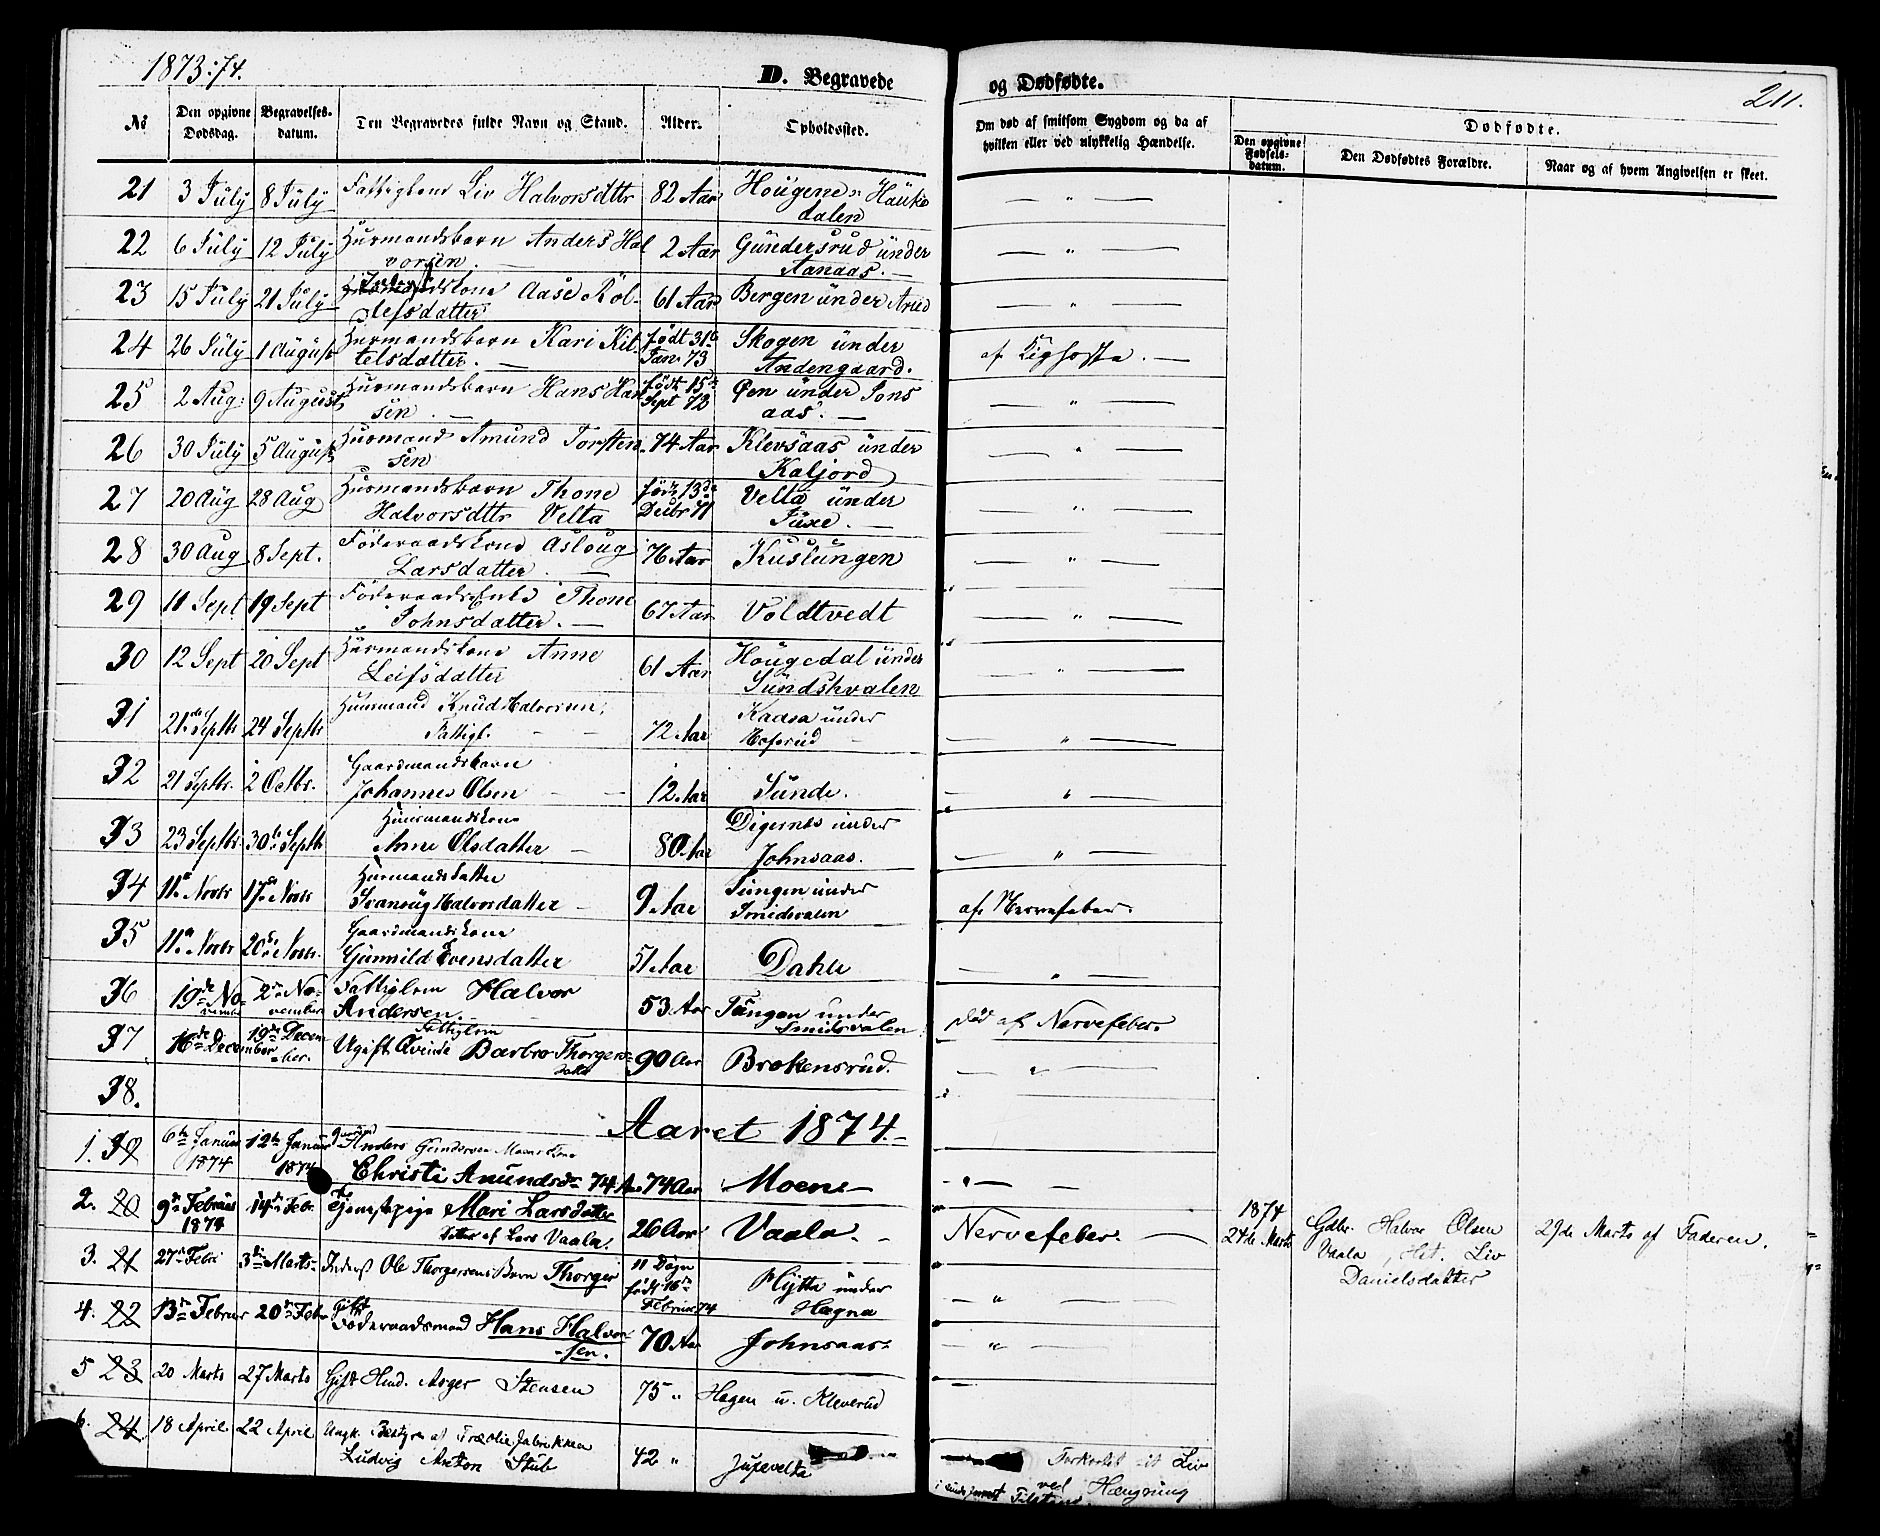 1873:74.
D. Begravede
og Dødfødte.
211.
No
Den opgivne Dødsdag.
Begravelses-datum.
Den Begravedes fulde Navn og Stand.
Alder.
Opholdssted.
Om død af smitsom Sygdom og da af hvilken eller ved ulykkelig Hændelse.
Dødfødte.
Den opgivne Fødsels-datum.
Den Dødfødtes Forældre.
Naar og af hvem Angivelsen er skeet.
21 3 July 8 July Fattiglem Liv Halvorsdttr 82 Aar Hougene Hauke
dalen
22 6 July 12 July Huusmandsbarn Anders Hal 2 Aar Gundersrud under
vorsen. Aanaas.
23 15 July 21 July Aase Rol- 61 Aar Bergen under Arud
lefsdatter
24 26 July 1 August Huusmandsbarn Kari Kit- født 31te Skogen under af Kighoste.
telsdatter. Jan. 73 Andengaard.
25 2 Aug: 9 August Huusmandsbarn Hans Han født 15de Øen under Jons
sen. Sept 72 aas.
26 30 July 5 August Huusmand Amund Torsten 74 Aar Klevsaas under
sen Kaljord
27 20 Aug 28 Aug Huusmandsbarn Thone født 13de Velta under
Halvorsdttr Velta Decbr 71 Juxe.
28 30 Aug 8 Sept. Føderaadskone Aslaug 76 Aar Kuslungen
Larsdatter.
29 11 Sept 19 Sept Føderaads Enke Thone 67 Aar Voldtvedt
Johnsdatter.
30 12 Sept 20 Sept Huusmandskone Anne 61 Aar Hougedal under
Leifsdatter Sundskvalen
31 21de Septbr 24 Septbr Huusmand Knud Halvorsen, 72 Aar Kaasa under
Fattigl. Hofsrud
32 21 Septbr. 2 Octbr. Gaardmandsbarn
Johannes Olsen 12 Aar Sunde.
33 23 Septbr. 30te Septbr Huusmandskone Digernes under
Anne Olsdatter 80 Aar Johnsaas.
34 11te Novbr 17de Novbr Huusmandsdatter 9 Aar Tangen under af Nervefeber.
Svanaug Halvorsdatter Smidsvalen
35 11te Novbr 20de Novbr. Gaardmandskone
Gunnild Evensdatter 51 Aar Dahle
36 19de No- 2den No- Fattiglem Halvor 53 Aar Tangen under død af Nervefeber.
vember vember Andersen. Smidsvalen
37 16de December 19de Decem- Fattiglem
ber. Ugift Qvinde Barbro Thorgers- 90 Aar Brokensrud.
datter
38.
Aaret 1874.
1. 39 6te Januar 12te Januar Gaardmd Anders Gundersen Moens Kone
1874 1874 Christi Amundsdr 74 Aar 74 Aar Moene
2. 20 9de Februar 14de Febr. Tjenestepige Mari Larsdatter 26 Aar Vaala. Nervefeber.
1874 datter af Lars Vaala.
1874
24de Marts Gdbr. Halvor Olsen 29de Marts af Faderen.
Vaala, Hst. Liv
Danielsdatter
3. 21 27de Febr 3die Marts Inderst Ole Thorgersens Barn Thorger 11 Døgn Plytta under
født 16de Hægna
Februar 74
4. 22 13de Februar 20de Febr Gift
Føderaadsmand Hans Halvor 70 Aar Johnsaas
sen.
5 23 20 Marts 27 Marts Gift Hmd. Asger Stensen 75 " Hagen u. Kleverud
6. 24. 18 April 22 April Ungk. Bestyrer af Træoliefabrikken
Ludvig Anton Stub 42 " Juxevelta Forkortet sit Liv
ved Hængning